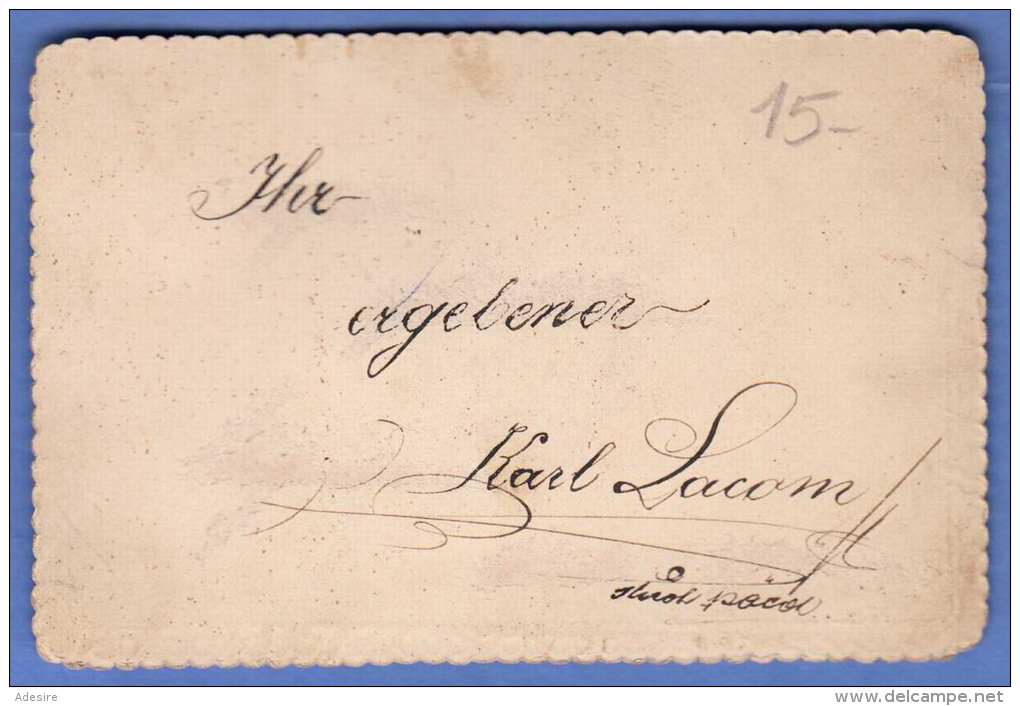 15-
Ihr
ergebener
Karl Lacom
stud. paed.
Adesire
www.delcampe.net